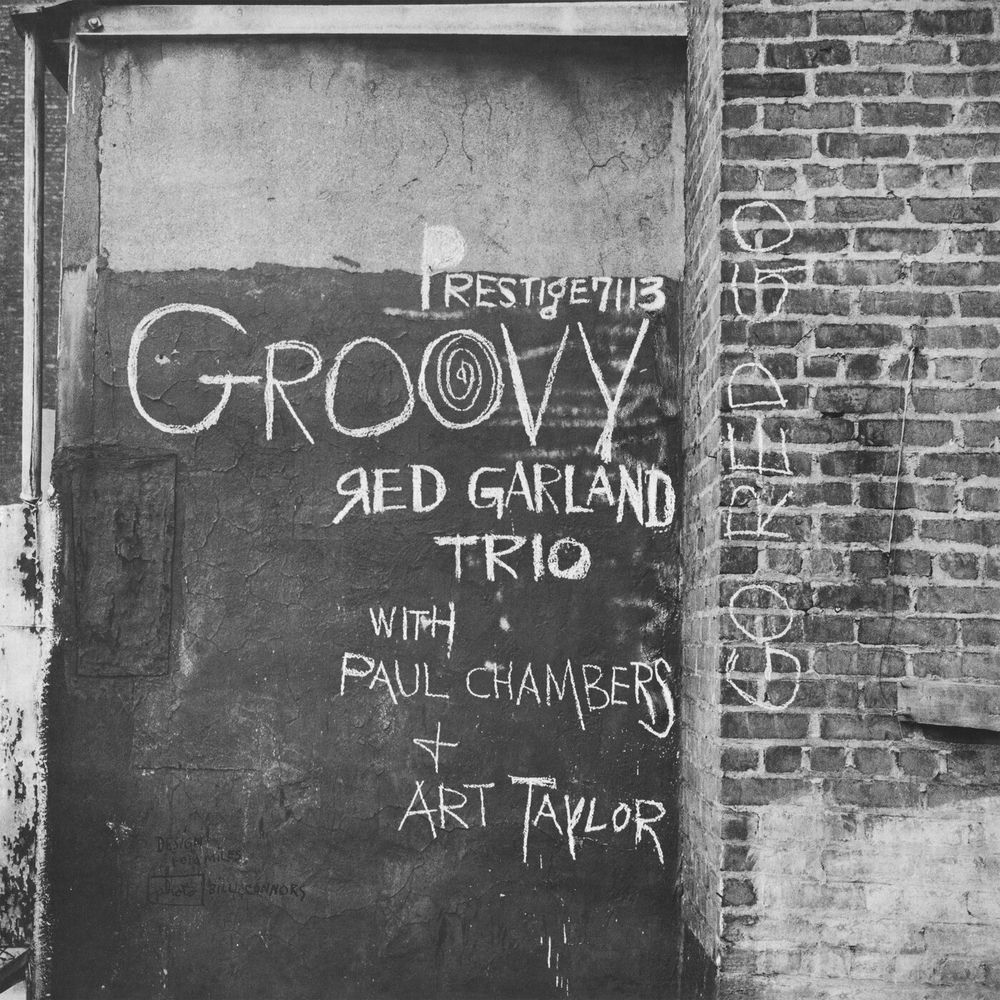 PRESTIGE 7113
GROOVY
RED GARLAND
TRIO
WITH
PAUL CHAMBERS
+
ART TAYLOR
GO RED 50
DESIGN
REID MILES
PHOTO BILL CONNORS